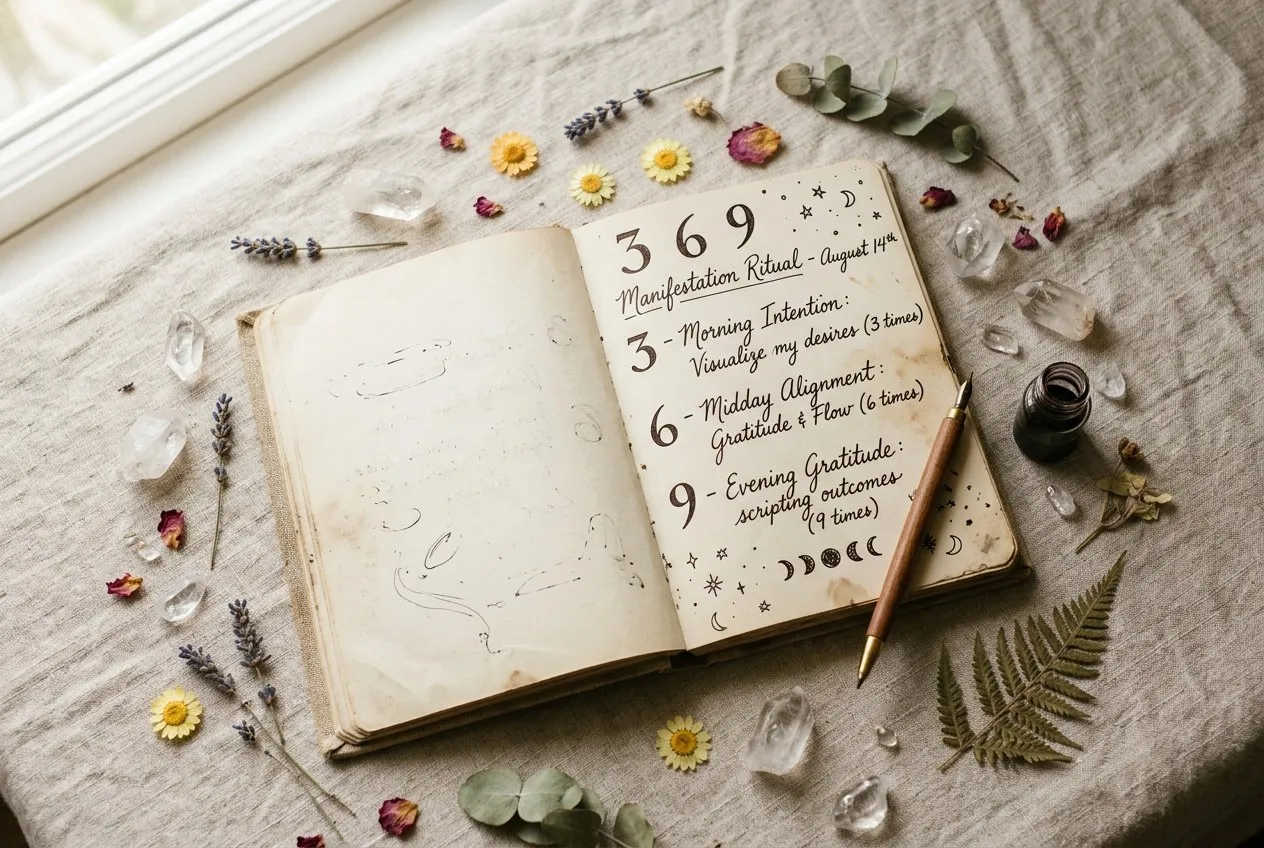 3 6 9
Manifestation Ritual - August 14th
3 - Morning Intention:
Visualize my desires (3 times)
6 - Midday Alignment:
Gratitude & Flow (6 times)
9 - Evening Gratitude:
scripting outcomes
(9 times)